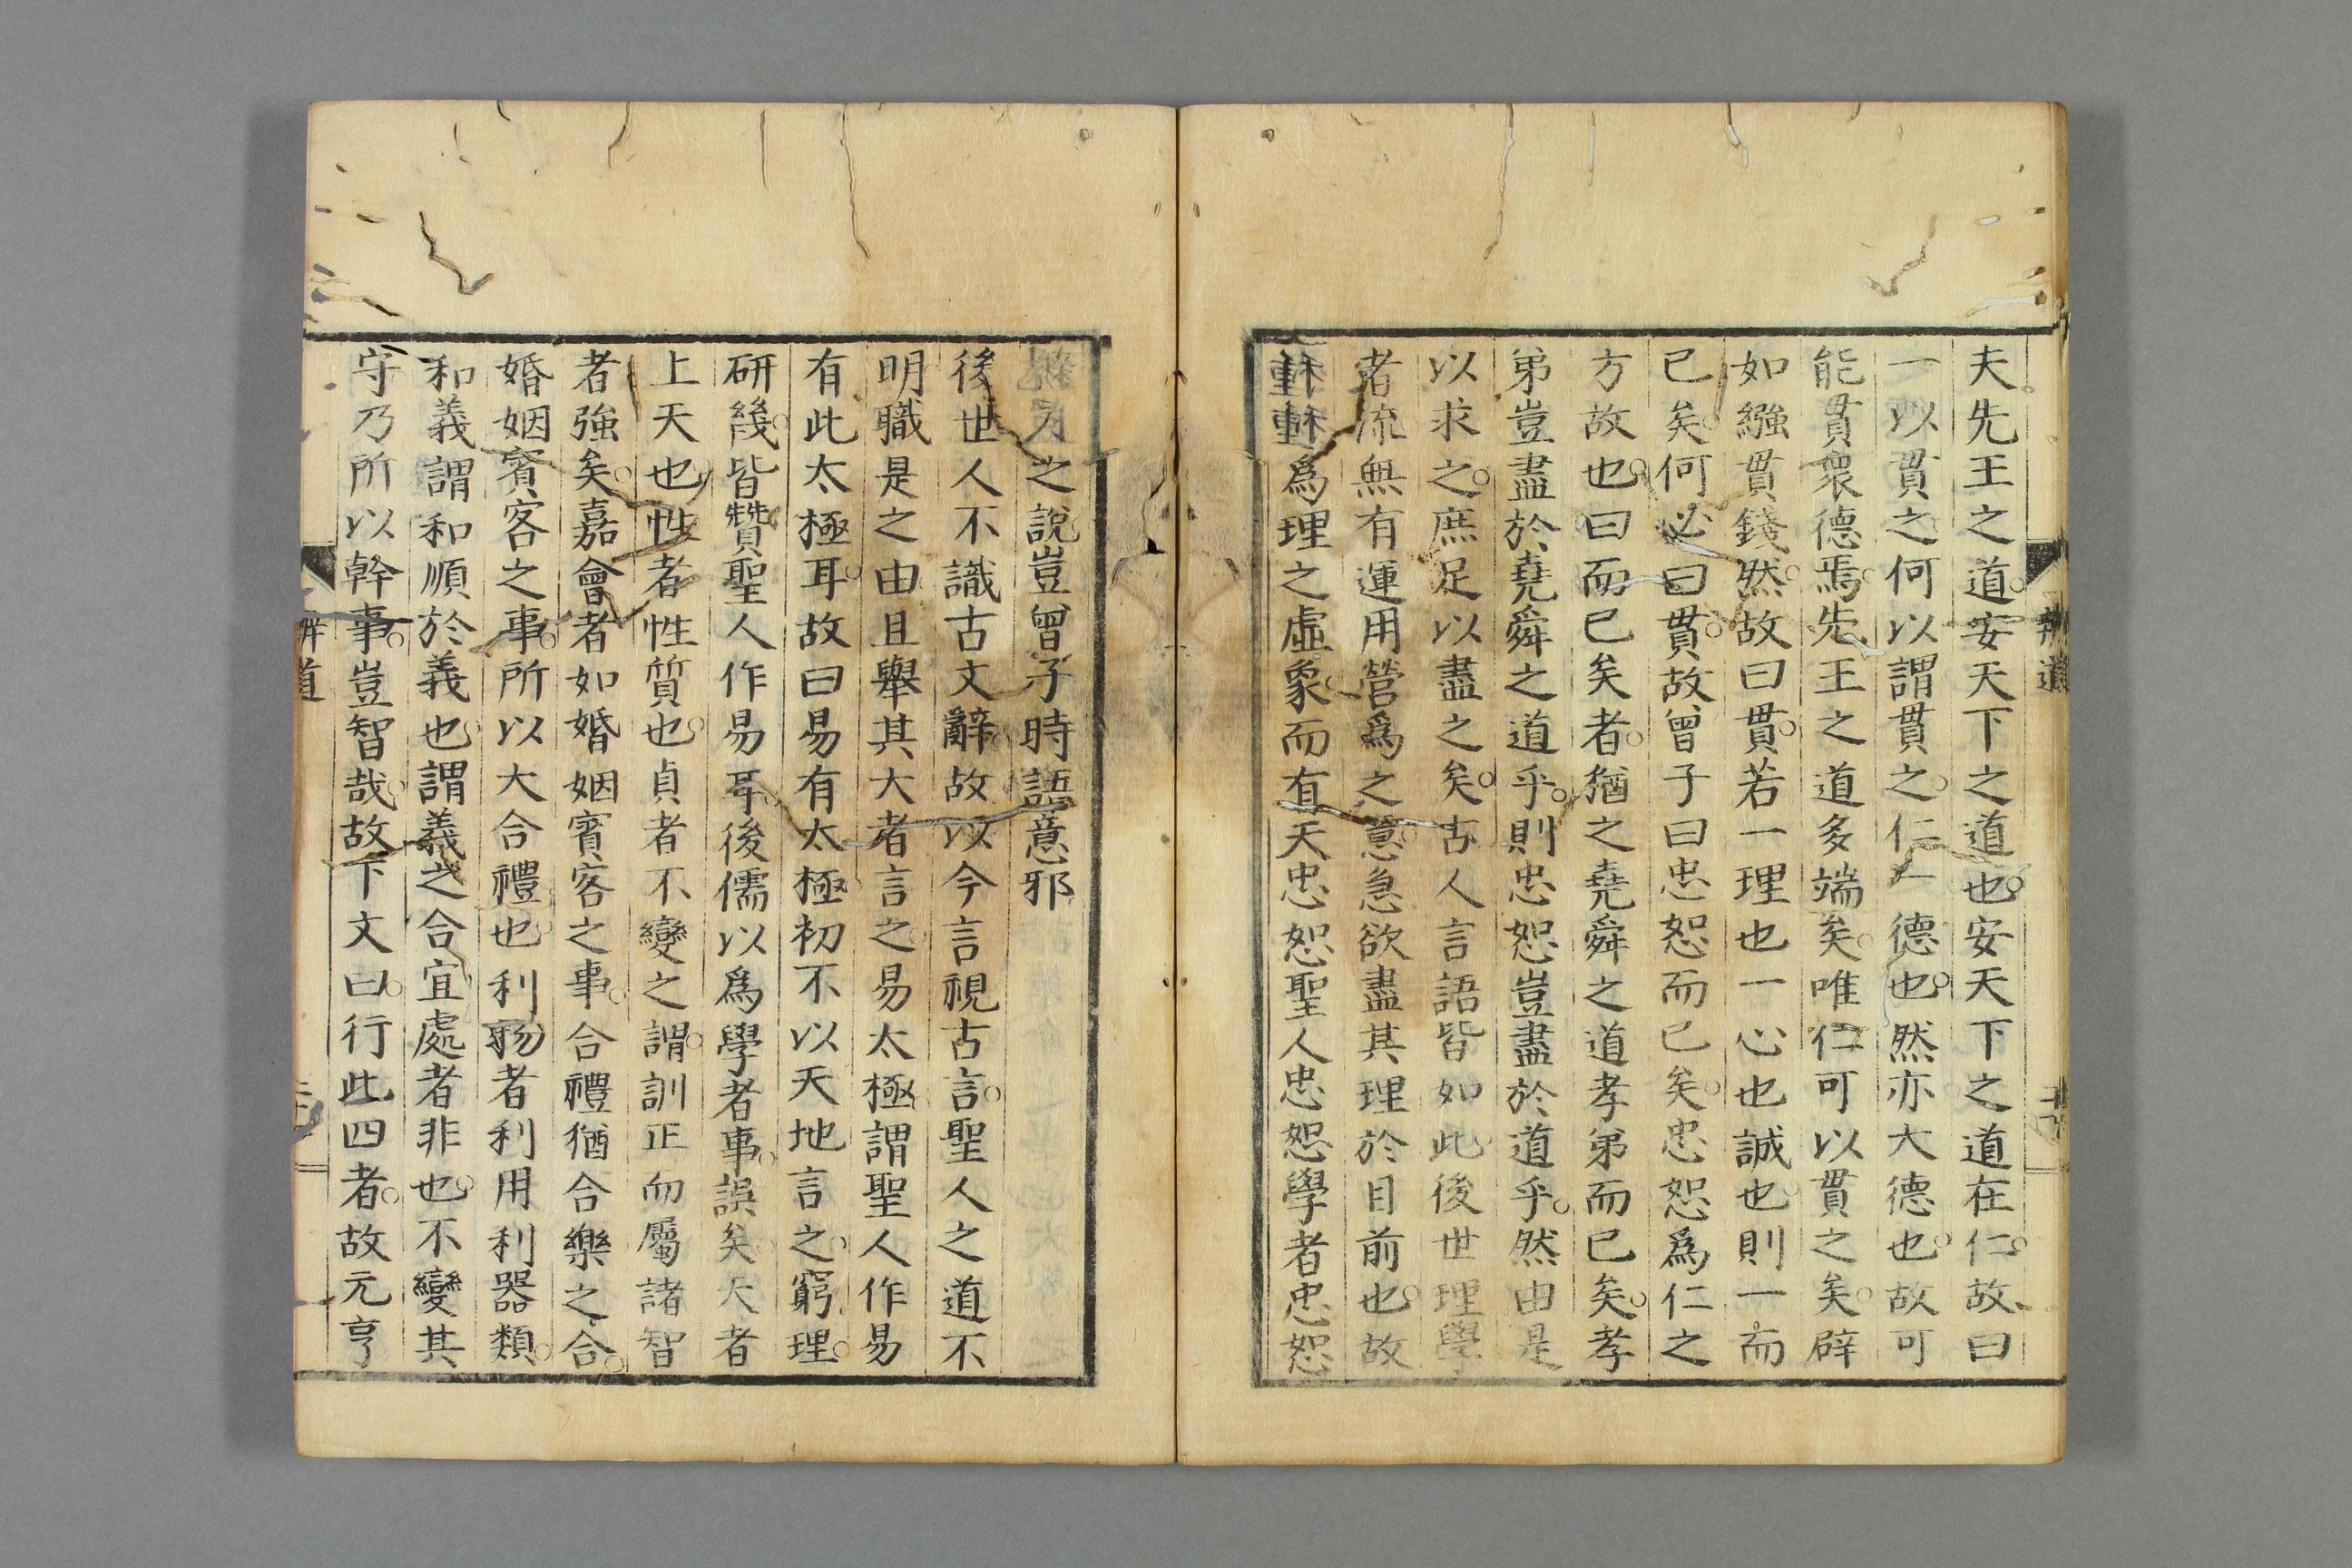 夫先王之道安天下之道也安天下之道在仁故曰
一以貫之何以謂貫之仁一德也然亦大德也故可
能貫衆德焉先王之道多端矣唯仁可以貫之矣辟
如繦貫錢然故曰貫若一理也一心也誠也則一而
已矣何必曰貫故曾子曰忠恕而已矣忠恕爲仁之
方故也曰而已矣者猶之堯舜之道孝弟而已矣孝
弟豈盡於堯舜之道乎則忠恕豈盡於道乎然由是
以求之庶足以盡之矣古人言語皆如此後世理學
者流無有運用營爲之意急欲盡其理於目前也故
爲理之虛象而有天忠恕聖人忠恕學者忠恕
之說豈曾子時語意邪
後世人不識古文辭故以今言視古言聖人之道不
明職是之由且舉其大者言之易太極謂聖人作易
有此太極耳故曰易有太極初不以天地言之窮理
研幾皆贊聖人作易耳後儒以爲學者事誤矣天者
上天也性者性質也貞者不變之謂訓正而屬諸智
者強矣嘉會者如婚姻賓客之事合禮猶合樂之合
婚姻賓客之事所以大合禮也利物者利用利器類
和義謂和順於義也謂義之合宜處者非也不變其
守乃所以幹事豈智哉故下文曰行此四者故元亨
辨道